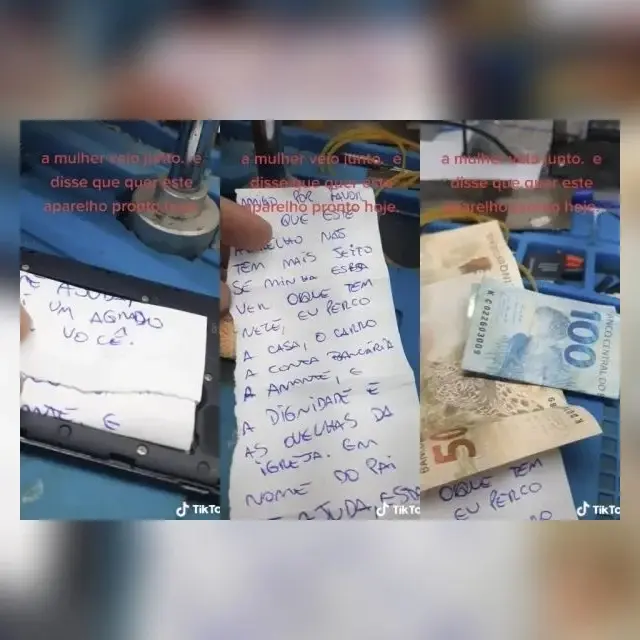 a mulher veio junto. e
disse que quer este
aparelho pronto hoje.
E AJUDA,
UM AGRADO
VOCÊ.
E
TikTo
a mulher veio junto. e
disse que quer este
aparelho pronto hoje.
POR FAVOR
QUE ESTE
APARELHO NÃO
TEM MAIS JEITO
SE MINHA ESPOSA
VER OQUE TEM
NELE, EU PERCO
A CASA, O CARRO
A CONTA BANCÁRIA
A AMANTE, E
A DIGNIDADE E
AS OVELHAS DA
IGREJA. EM
NOME DO PAI
AJUDA, ESTA
TikTo
a mulher veio junto. e
disse que quer este
aparelho pronto hoje.
100
BANCO CENTRAL DO
50
OQUE TEM
EU PERCO
TikTo